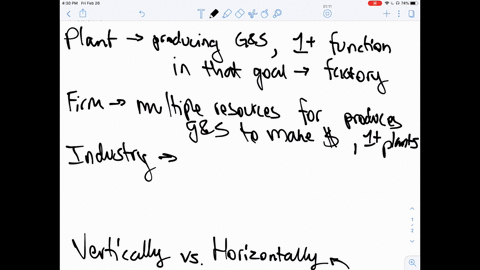 4:30 PM Fri Feb 28
74%
Plant → producing G&S, 1+ function
in that goal → factory
Firm → multiple resources for produces
g&S to make $, 1+ plants
Industry →
Vertically vs. Horizontally